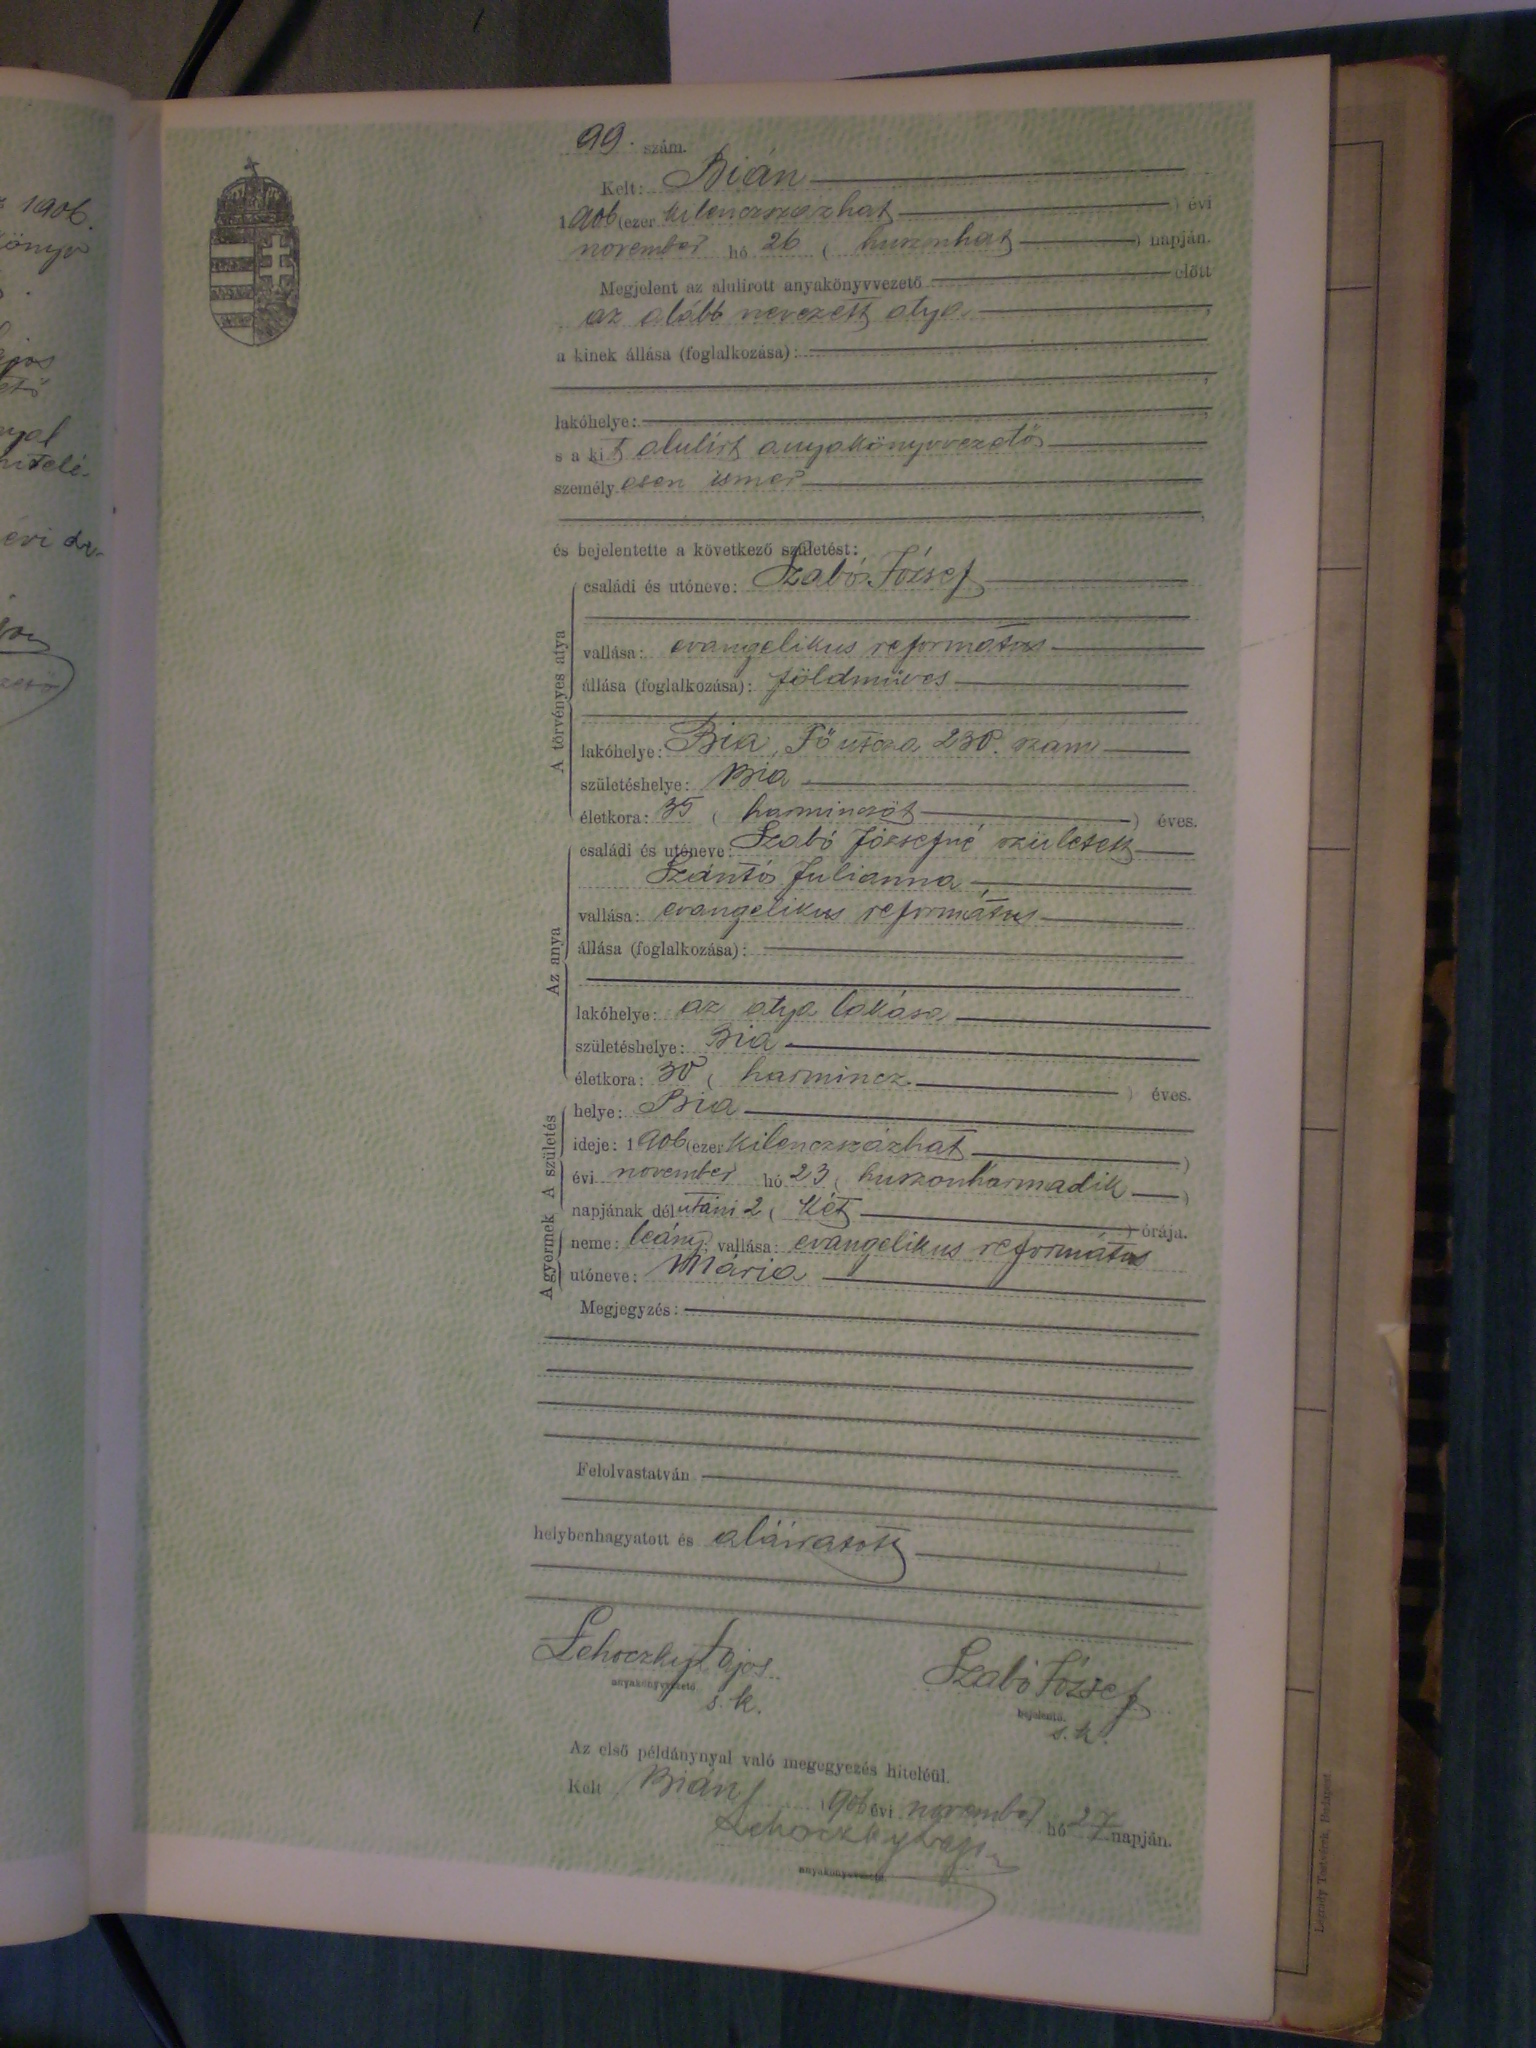 1906.
könyv
évi
99. szám.
Kelt: Bián
1906 (ezer kilenczszázhat) évi
november hó 26 (huszonhat) napján.
Megjelent az alulirott anyakönyvvezető előtt
az alább nevezett atya,
a kinek állása (foglalkozása):
lakóhelye:
s a kit alulírt anyakönyvvezető
személyesen ismer
és bejelentette a következő születést:
A törvényes atya
családi és utóneve: Szabó József
vallása: evangelikus református
állása (foglalkozása): földmüves
lakóhelye: Bia, Fő utcza 230. szám
születéshelye: Bia
életkora: 35 (harminczöt) éves.
Az anya
családi és utóneve: Szabó Józsefné született
Szántó Julianna
vallása: evangelikus református
állása (foglalkozása):
lakóhelye: az atya lakása
születéshelye: Bia
életkora: 30 (harmincz) éves.
A születés
helye: Bia
ideje: 1906 (ezer kilenczszázhat)
évi november hó 23 (huszonharmadik)
napjának délutáni 2 (két) órája.
A gyermek
neme: leány; vallása: evangelikus református
utóneve: Mária
Megjegyzés:
Felolvastatván
helybenhagyatott és aláiratott
Lehoczky Lajos Szabó József
anyakönyvvezető. bejelentő.
s. k. s. k.
Az első példánynyal való megegyezés hiteléül.
Kelt Bián, 1906 évi november hó 27 napján.
Lehoczky Lajos
anyakönyvvezető.
Légrády Testvérek, Budapest